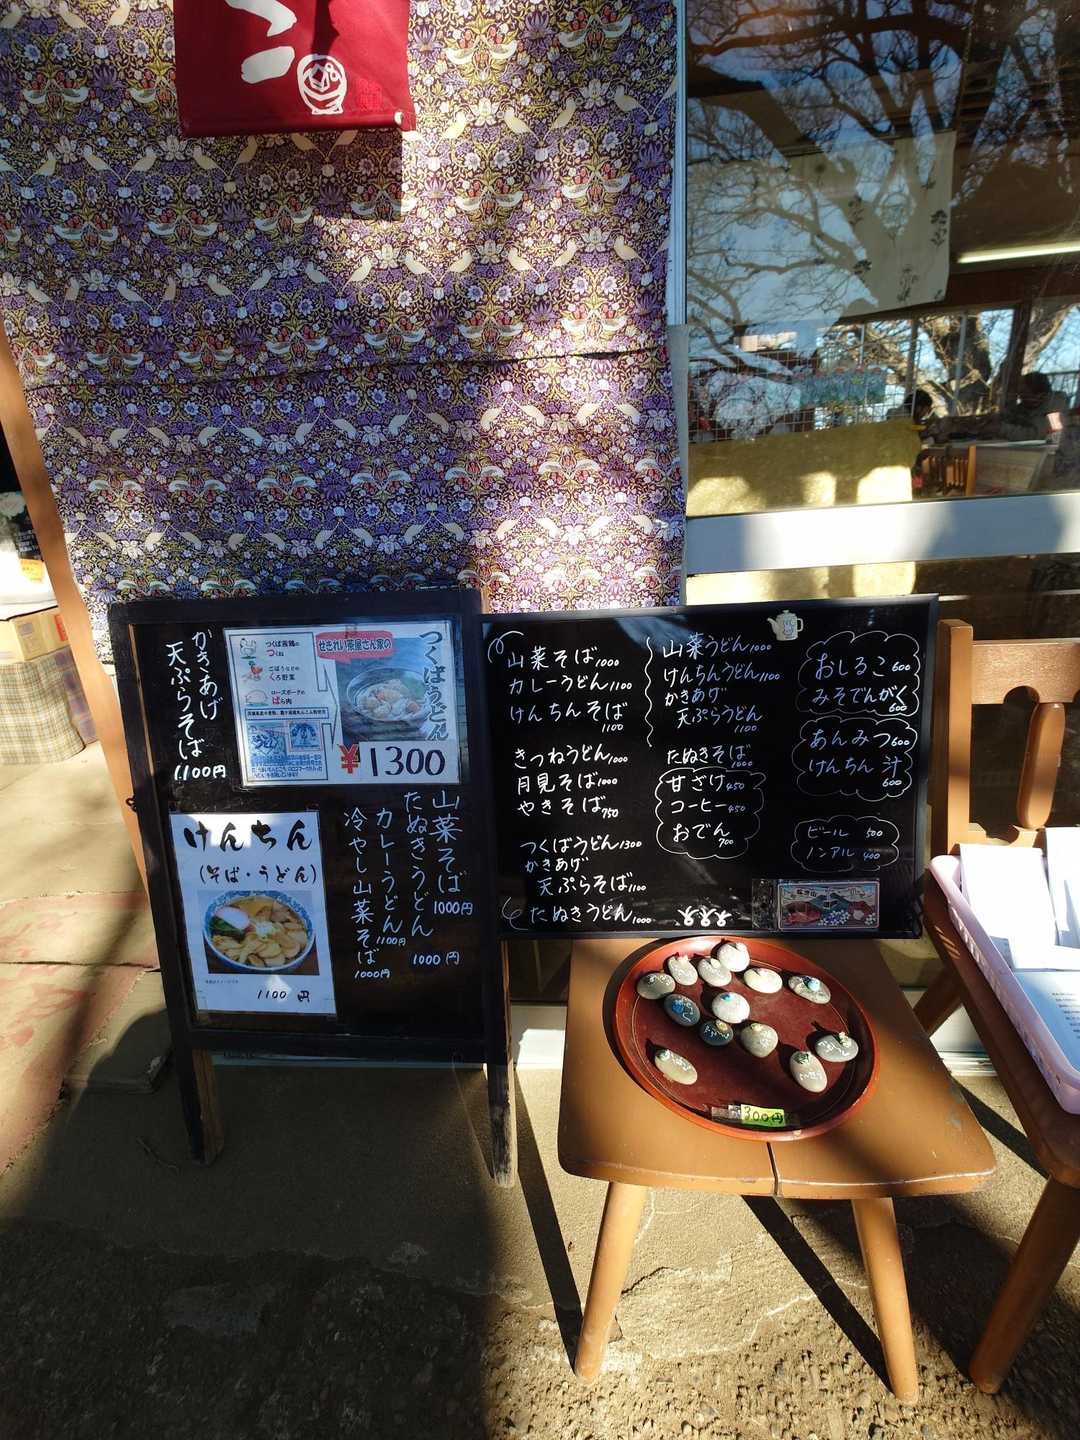 かきあげ
天ぷらそば
1100円
つくば茜鶏の
つくね
ごぼうなどの
くろ野菜
ローズポークの
ばら肉
せきれい茶屋さん家の
つくばうどん
¥1300
けんちん
(そば・うどん)
1100円
山菜そば
1000円
たぬきうどん
1000円
カレーうどん
1100円
冷やし山菜そば
1000円
山菜そば1000
カレーうどん1100
けんちんそば
1100
きつねうどん1000
月見そば1000
やきそば750
つくばうどん1300
かきあげ
天ぷらそば1100
たぬきうどん1000
山菜うどん1000
けんちんうどん1100
かきあげ
天ぷらうどん
1100
たぬきそば
1000
甘ざけ450
コーヒー450
おでん
700
おしるこ600
みそでんがく
600
あんみつ600
けんちん汁
600
ビール 500
ノンアル 400
300円